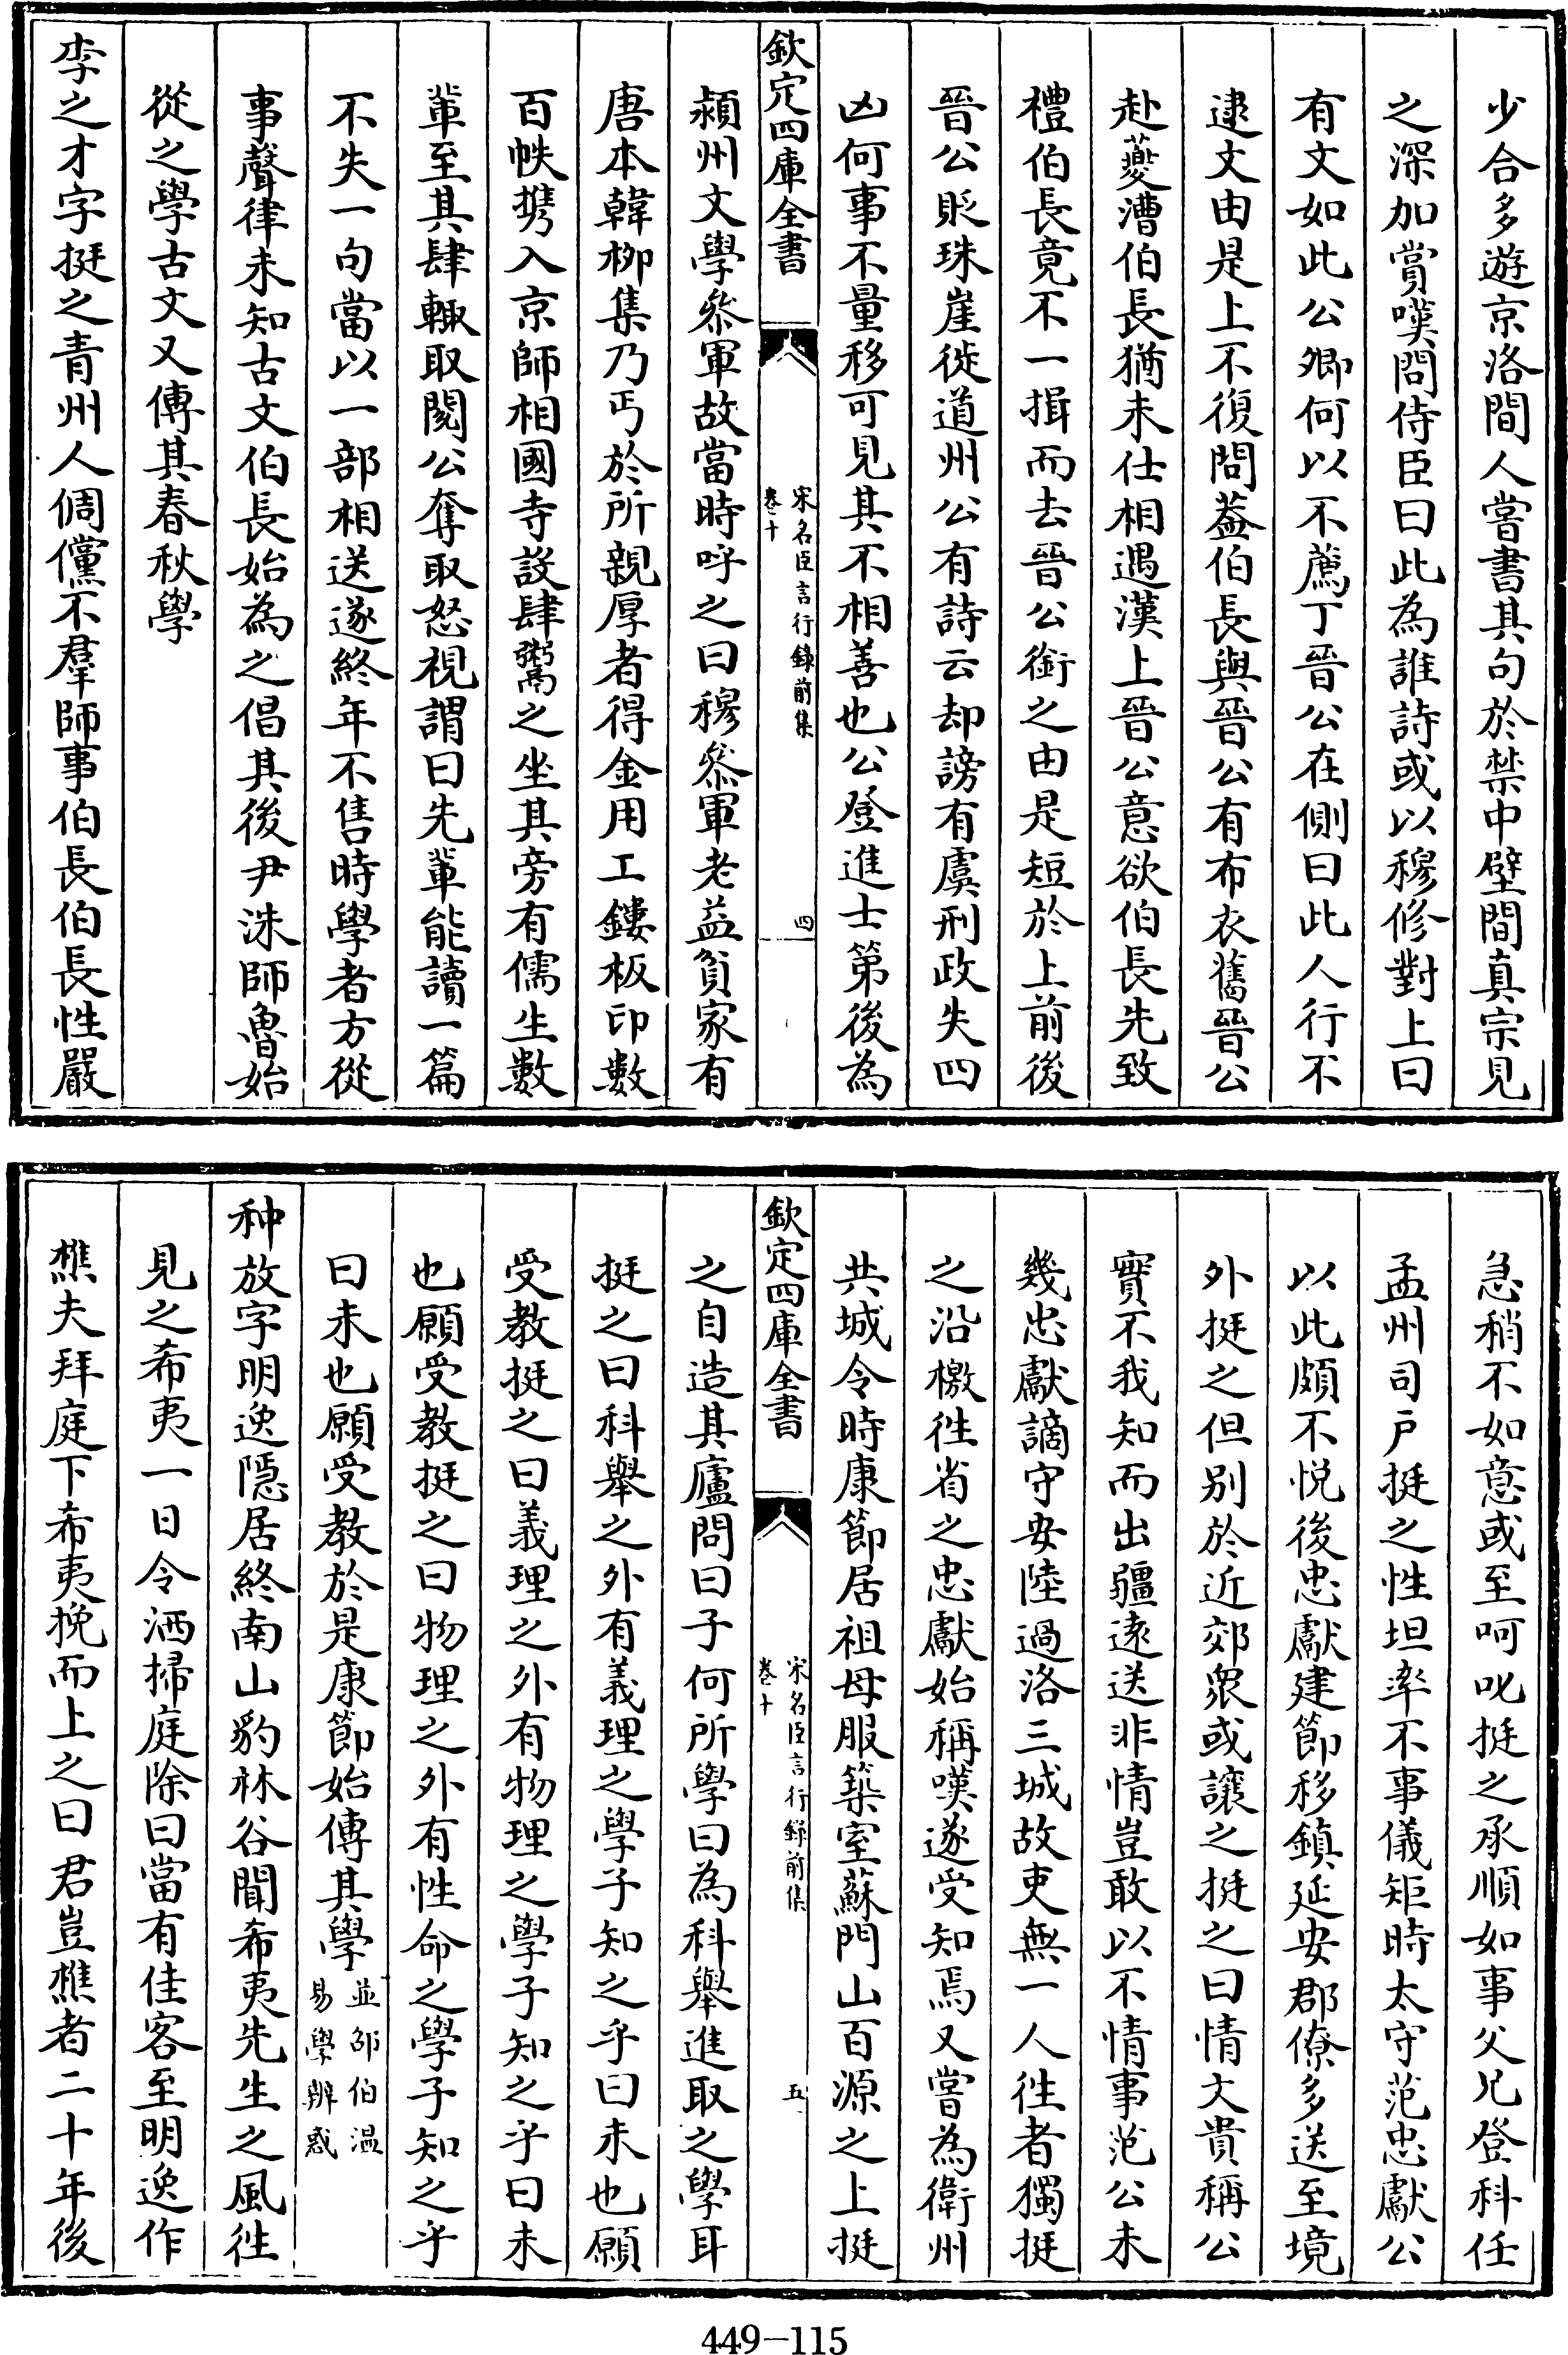 少合多遊京洛間人嘗書其句於禁中壁間真宗見
之深加賞嘆問侍臣曰此為誰詩或以穆修對上曰
有文如此公卿何以不薦丁晉公在側曰此人行不
逮文由是上不復問葢伯長與晉公有布衣舊晉公
赴夔漕伯長猶未仕相遇漢上晉公意欲伯長先致
禮伯長竟不一揖而去晉公銜之由是短於上前後
晉公貶珠崖徙道州公有詩云却謗有虞刑政失四
凶何事不量移可見其不相善也公登進士第後為
欽定四庫全書
宋名臣言行錄前集
卷十
四
潁州文學叅軍故當時呼之曰穆叅軍老益貧家有
唐本韓柳集乃丐於所親厚者得金用工鏤板印數
百帙携入京師相國寺設肆鬻之坐其旁有儒生數
輩至其肆輙取閱公奪取怒視謂曰先輩能讀一篇
不失一句當以一部相送遂終年不售時學者方從
事聲律未知古文伯長始為之倡其後尹洙師魯始
從之學古文又傳其春秋學
李之才字挺之青州人倜儻不羣師事伯長伯長性嚴
急稍不如意或至呵叱挺之承順如事父兄登科任
孟州司戶挺之性坦率不事儀矩時太守范忠獻公
以此頗不悅後忠獻建節移鎮延安郡僚多送至境
外挺之但别於近郊衆或讓之挺之曰情文貴稱公
實不我知而出疆遠送非情豈敢以不情事范公未
幾忠獻謫守安陸過洛三城故吏無一人徃者獨挺
之沿檄徃省之忠獻始稱嘆遂受知焉又嘗為衛州
共城令時康節居祖母服築室蘇門山百源之上挺
欽定四庫全書
宋名臣言行錄前集
卷十
五
之自造其廬問曰子何所學曰為科舉進取之學耳
挺之曰科舉之外有義理之學子知之乎曰未也願
受教挺之曰義理之外有物理之學子知之乎曰未
也願受教挺之曰物理之外有性命之學子知之乎
曰未也願受教於是康節始傳其學並邵伯温
易學辨惑
种放字明逸隱居終南山豹林谷聞希夷先生之風徃
見之希夷一日令洒掃庭除曰當有佳客至明逸作
樵夫拜庭下希夷挽而上之曰君豈樵者二十年後
449-115